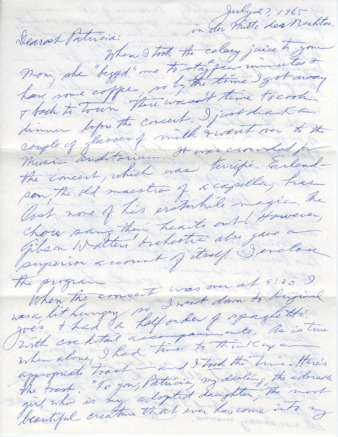 July 27, 1965
in der Mitte des Nachtes
Dearest Patricia:
When I took the celery juice to your
Mom, she "begged" me to stay a few minutes &
have some coffee, so by the time I got away
& back to town there wasn't time to cook
dinner before the concert. I just drank a
couple of glasses of milk & went over to the
Music Auditorium. It was crowded for
the concert, which was terrific. Erlend-
son, the old maestro of a capella, has
lost none of his erstwhile magic. The
choir sang their hearts out! However,
Gibson Walters' Orchestra also gave a
superior account of itself. I enclose
the program.
When the concert was over at 9:30 I
was a bit hungry so I went down to Original
Joe's & had a half order of spaghetti
with cocktail accompaniments. As is true
when alone, I had time to think of an
appropriate toast — and I took the time. Here's
the toast. "To you, Patricia, my darling, the adorable
girl who is my adopted daughter, the most
beautiful creature that ever has come into my